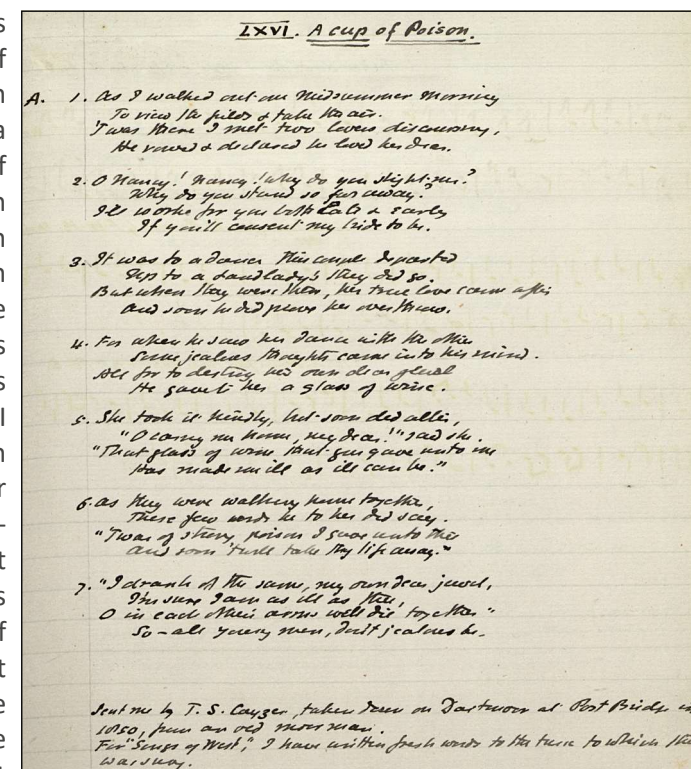 LXVI. A cup of Poison.
A. 1. As I walked out one Midsummer Morning
To view the fields & take the air.
'Twas there I met two lovers discoursing,
He vowed & declared he loved her dear.
2. O Nancy! Nancy! why do you slight me?
Why do you stand so far away?
I'll worke for you both late & early
If you'll consent my bride to be.
3. It was to a dance this couple departed
to a Landlady's they did go.
But when they were there, her true love came after
and soon he did prove her overthrow.
4. For when he saw her dance with the other
Some jealous thoughts came into his mind.
All for to destroy his own dear
He gave her a glass of wine.
5. She took it kindly, but soon did alter,
"O carry me home, my dear!" said she.
"That glass of wine that you gave unto me
Has made me ill as ill can be."
6. As they were walking home together,
These few words he to her did say.
"'Twas of strong poison I gave unto thee
and soon 'twill take thy life away."
7. "I drank of the same, my own dear jewel,
I'm sure I am as ill as thee,
O in each other's arms we'll die together"
So - all young men, don't jealous be.
Sent me by T. S. Cayzer, taken down on Dartmoor at Post Bridge in
1850, from an old moor man.
For "Songs of West," I have written fresh words to the tune to which this
was sung.
s
f
n
a
f
n
n
n
e
s
s
l
n
r
-
t
s
f
t
e
e